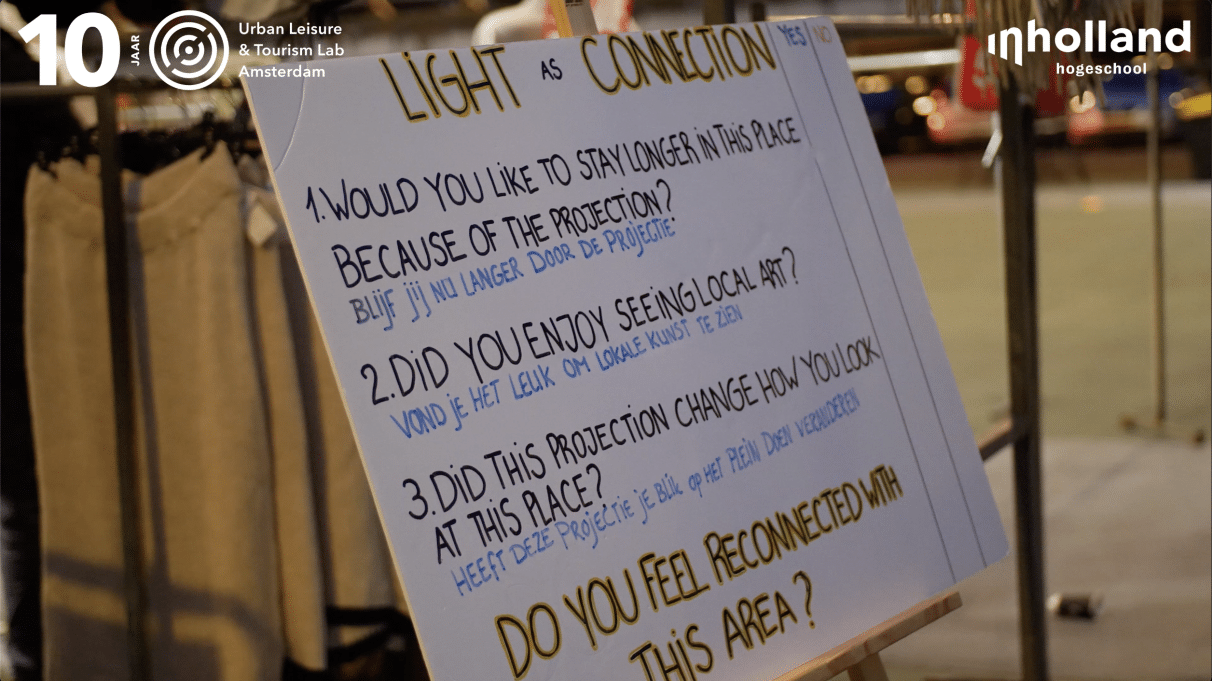 10 JAAR
Urban Leisure
& Tourism Lab
Amsterdam
inholland
hogeschool
LIGHT AS CONNECTION
YES NO
1. WOULD YOU LIKE TO STAY LONGER IN THIS PLACE
BECAUSE OF THE PROJECTION?
BLIJF JIJ NU LANGER DOOR DE PROJECTIE
2. DID YOU ENJOY SEEING LOCAL ART?
VOND JE HET LEUK OM LOKALE KUNST TE ZIEN
3. DID THIS PROJECTION CHANGE HOW YOU LOOK
AT THIS PLACE?
HEEFT DEZE PROJECTIE JE BLIK OP HET PLEIN DOEN VERANDEREN
DO YOU FEEL RECONNECTED WITH
THIS AREA?